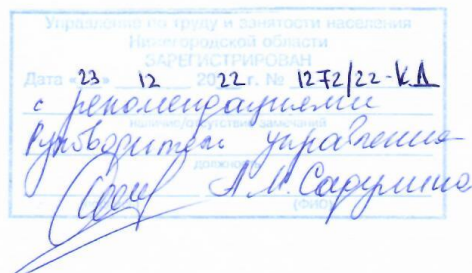 Управление по труду и занятости населения
Нижегородской области
ЗАРЕГИСТРИРОВАН
Дата «23» 12 2022 г. № 1272/22-КД
с рекомендациями
наличие/отсутствие замечаний
Руководитель управления
должность
А.М. Садулина
(ФИО)